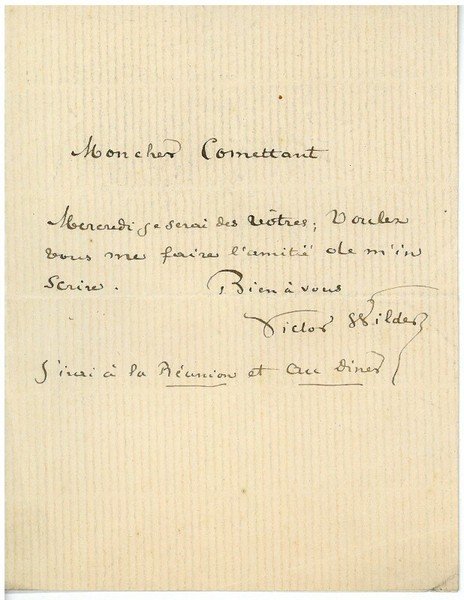 Mon cher Comettant
Mercredi je serai des vôtres; Voulez
vous me faire l'amitié de m'in
scrire. Bien à vous
Victor Wilder
J'irai à la Réunion et au Diner